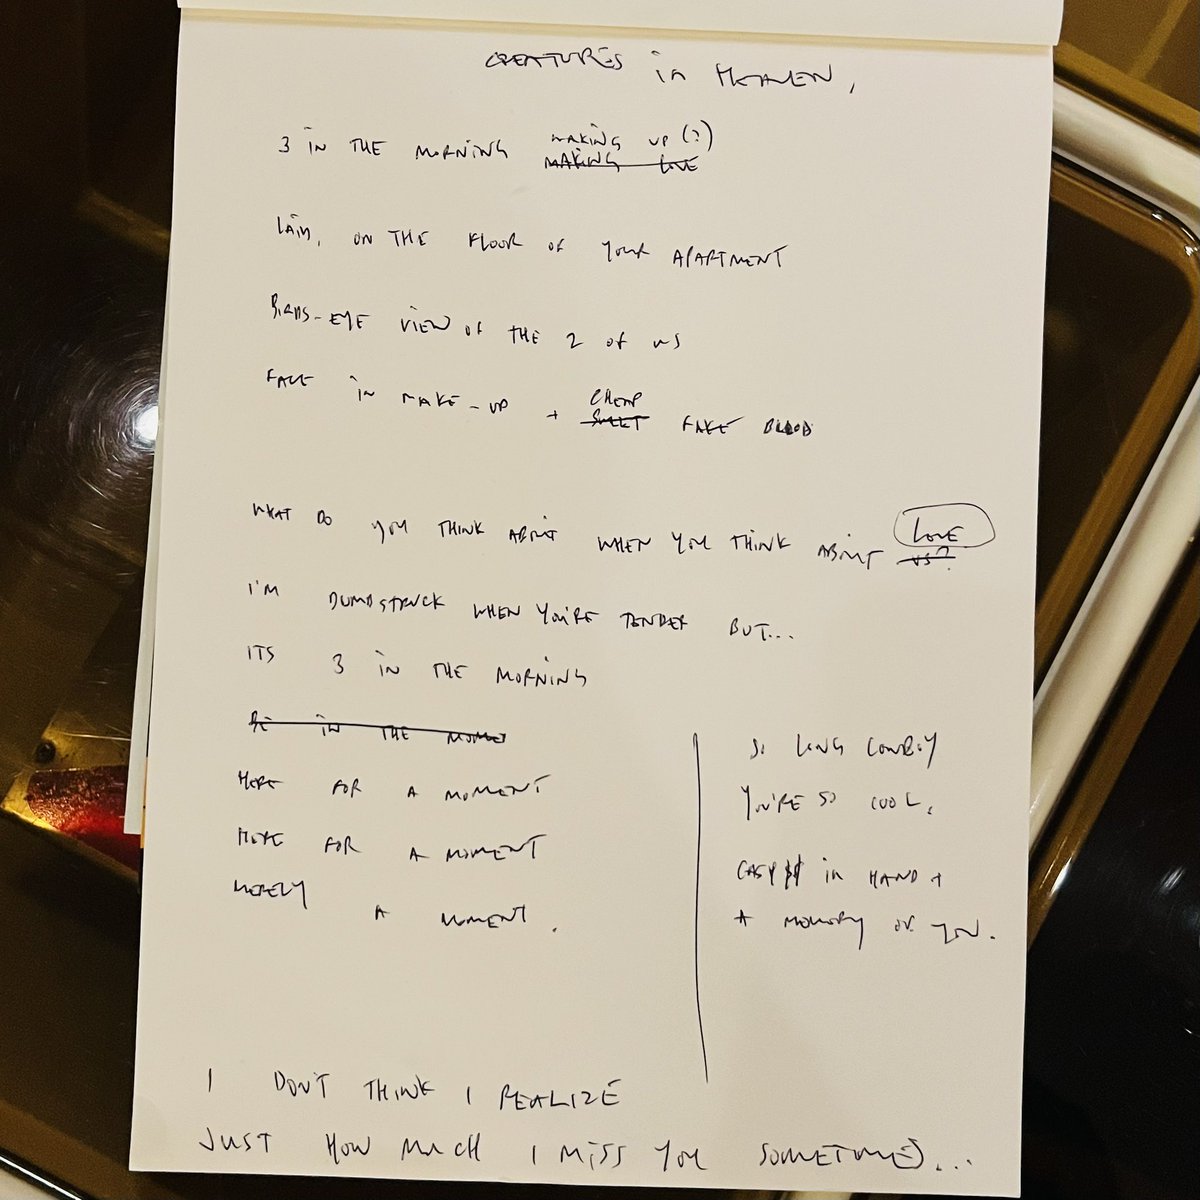 CREATURES in HEAVEN,
3 in THE MORNING WAKING UP (?)
MAKING LOVE
LAID, ON THE FLOOR OF YOUR APARTMENT
BIRDS-EYE VIEW OF THE 2 OF US
FACE IN MAKE-UP + CHEAP
SWEET FAKE BLOOD
WHAT DO YOU THINK ABOUT WHEN YOU THINK ABOUT LOVE
US?
I'M DUMBSTRUCK WHEN YOU'RE TENDER BUT...
ITS 3 IN THE MORNING
BE IN THE MOMENT
HERE FOR A MOMENT
HERE FOR A MOMENT
MERELY A MOMENT.
SO LONG COWBOY
YOU'RE SO COOL.
CASH $$ in HAND +
A MEMORY OF YOU.
I DON'T THINK I REALIZE
JUST HOW MUCH I MISS YOU SOMETIMES...